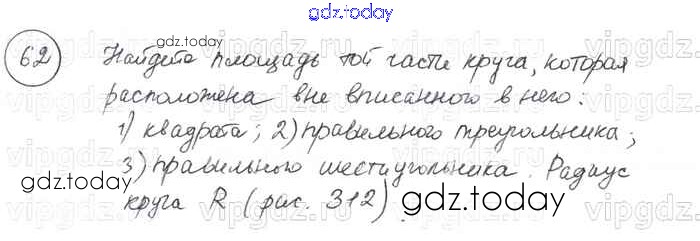 gdz.today
62 Найдите площадь той части круга, которая
gdz.today
расположена вне вписанного в него:
1) квадрата; 2) правильного треугольника;
3) правильного шестиугольника. Радиус
gdz.today
круга R (рис. 312).
gdz.today